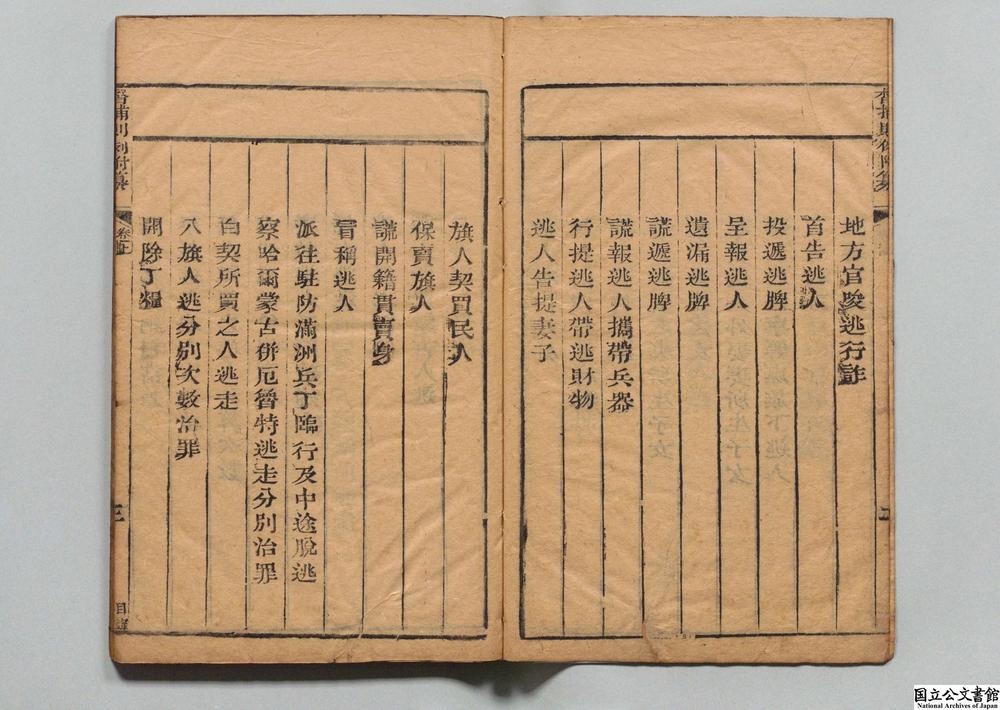 地方官
逃行
首告逃人
投遞逃牌
呈報逃人
遺漏逃牌
謊遞逃牌
謊報逃人攜帶兵器
行提逃人帶逃財物
逃人告提妻子
旗人契買民人
保賣旗人
謊開籍貫賣身
冒稱逃人
派往駐防滿洲兵丁臨行及中途脫逃
察哈爾蒙古併厄魯特逃走分別治罪
白契所買之人逃走
八旗人逃分別次數治罪
開除丁糧
督捕則例附纂
三
目錄
国立公文書館
National Archives of Japan